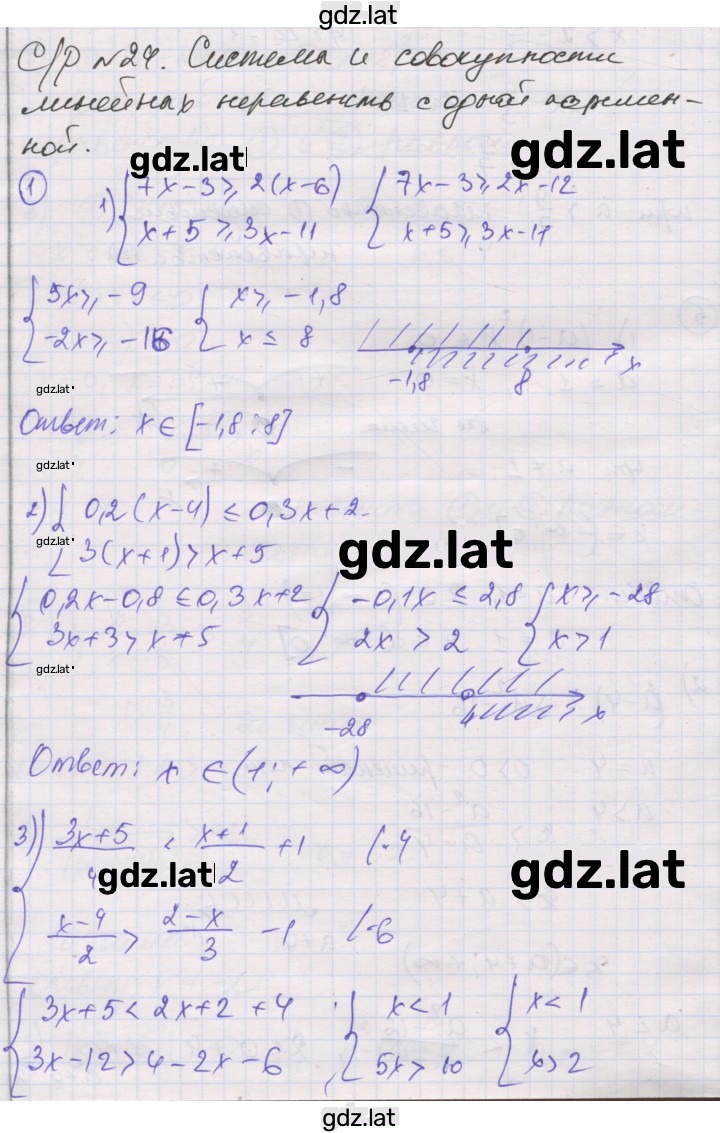 gdz.lat
С/р №24. Системы и совокупности
линейных неравенств с одной перемен-
ной.
gdz.lat gdz.lat
① 1) { 7x-3 ≥ 2(x-6) { 7x-3 ≥ 2x-12
x+5 ≥ 3x-11 x+5 ≥ 3x-11
{ 5x ≥ -9 { x ≥ -1,8
-2x ≥ -16 x ≤ 8
-1,8 8 x
gdz.lat
Ответ: x ∈ [-1,8; 8]
gdz.lat
2) { 0,2(x-4) ≤ 0,3x+2
3(x+1) > x+5
gdz.lat gdz.lat
{ 0,2x-0,8 ≤ 0,3x+2 { -0,1x ≤ 2,8 { x ≥ -28
3x+3 > x+5 2x > 2 x > 1
gdz.lat
-28 1 x
Ответ: x ∈ (1; +∞)
3) { (3x+5)/4 < (x+1)/2 +1 /·4
gdz.lat gdz.lat
(x-4)/2 > (2-x)/3 -1 /·6
{ 3x+5 < 2x+2+4 ; { x < 1 { x < 1
3x-12 > 4-2x-6 ; 5x > 10 x > 2
gdz.lat